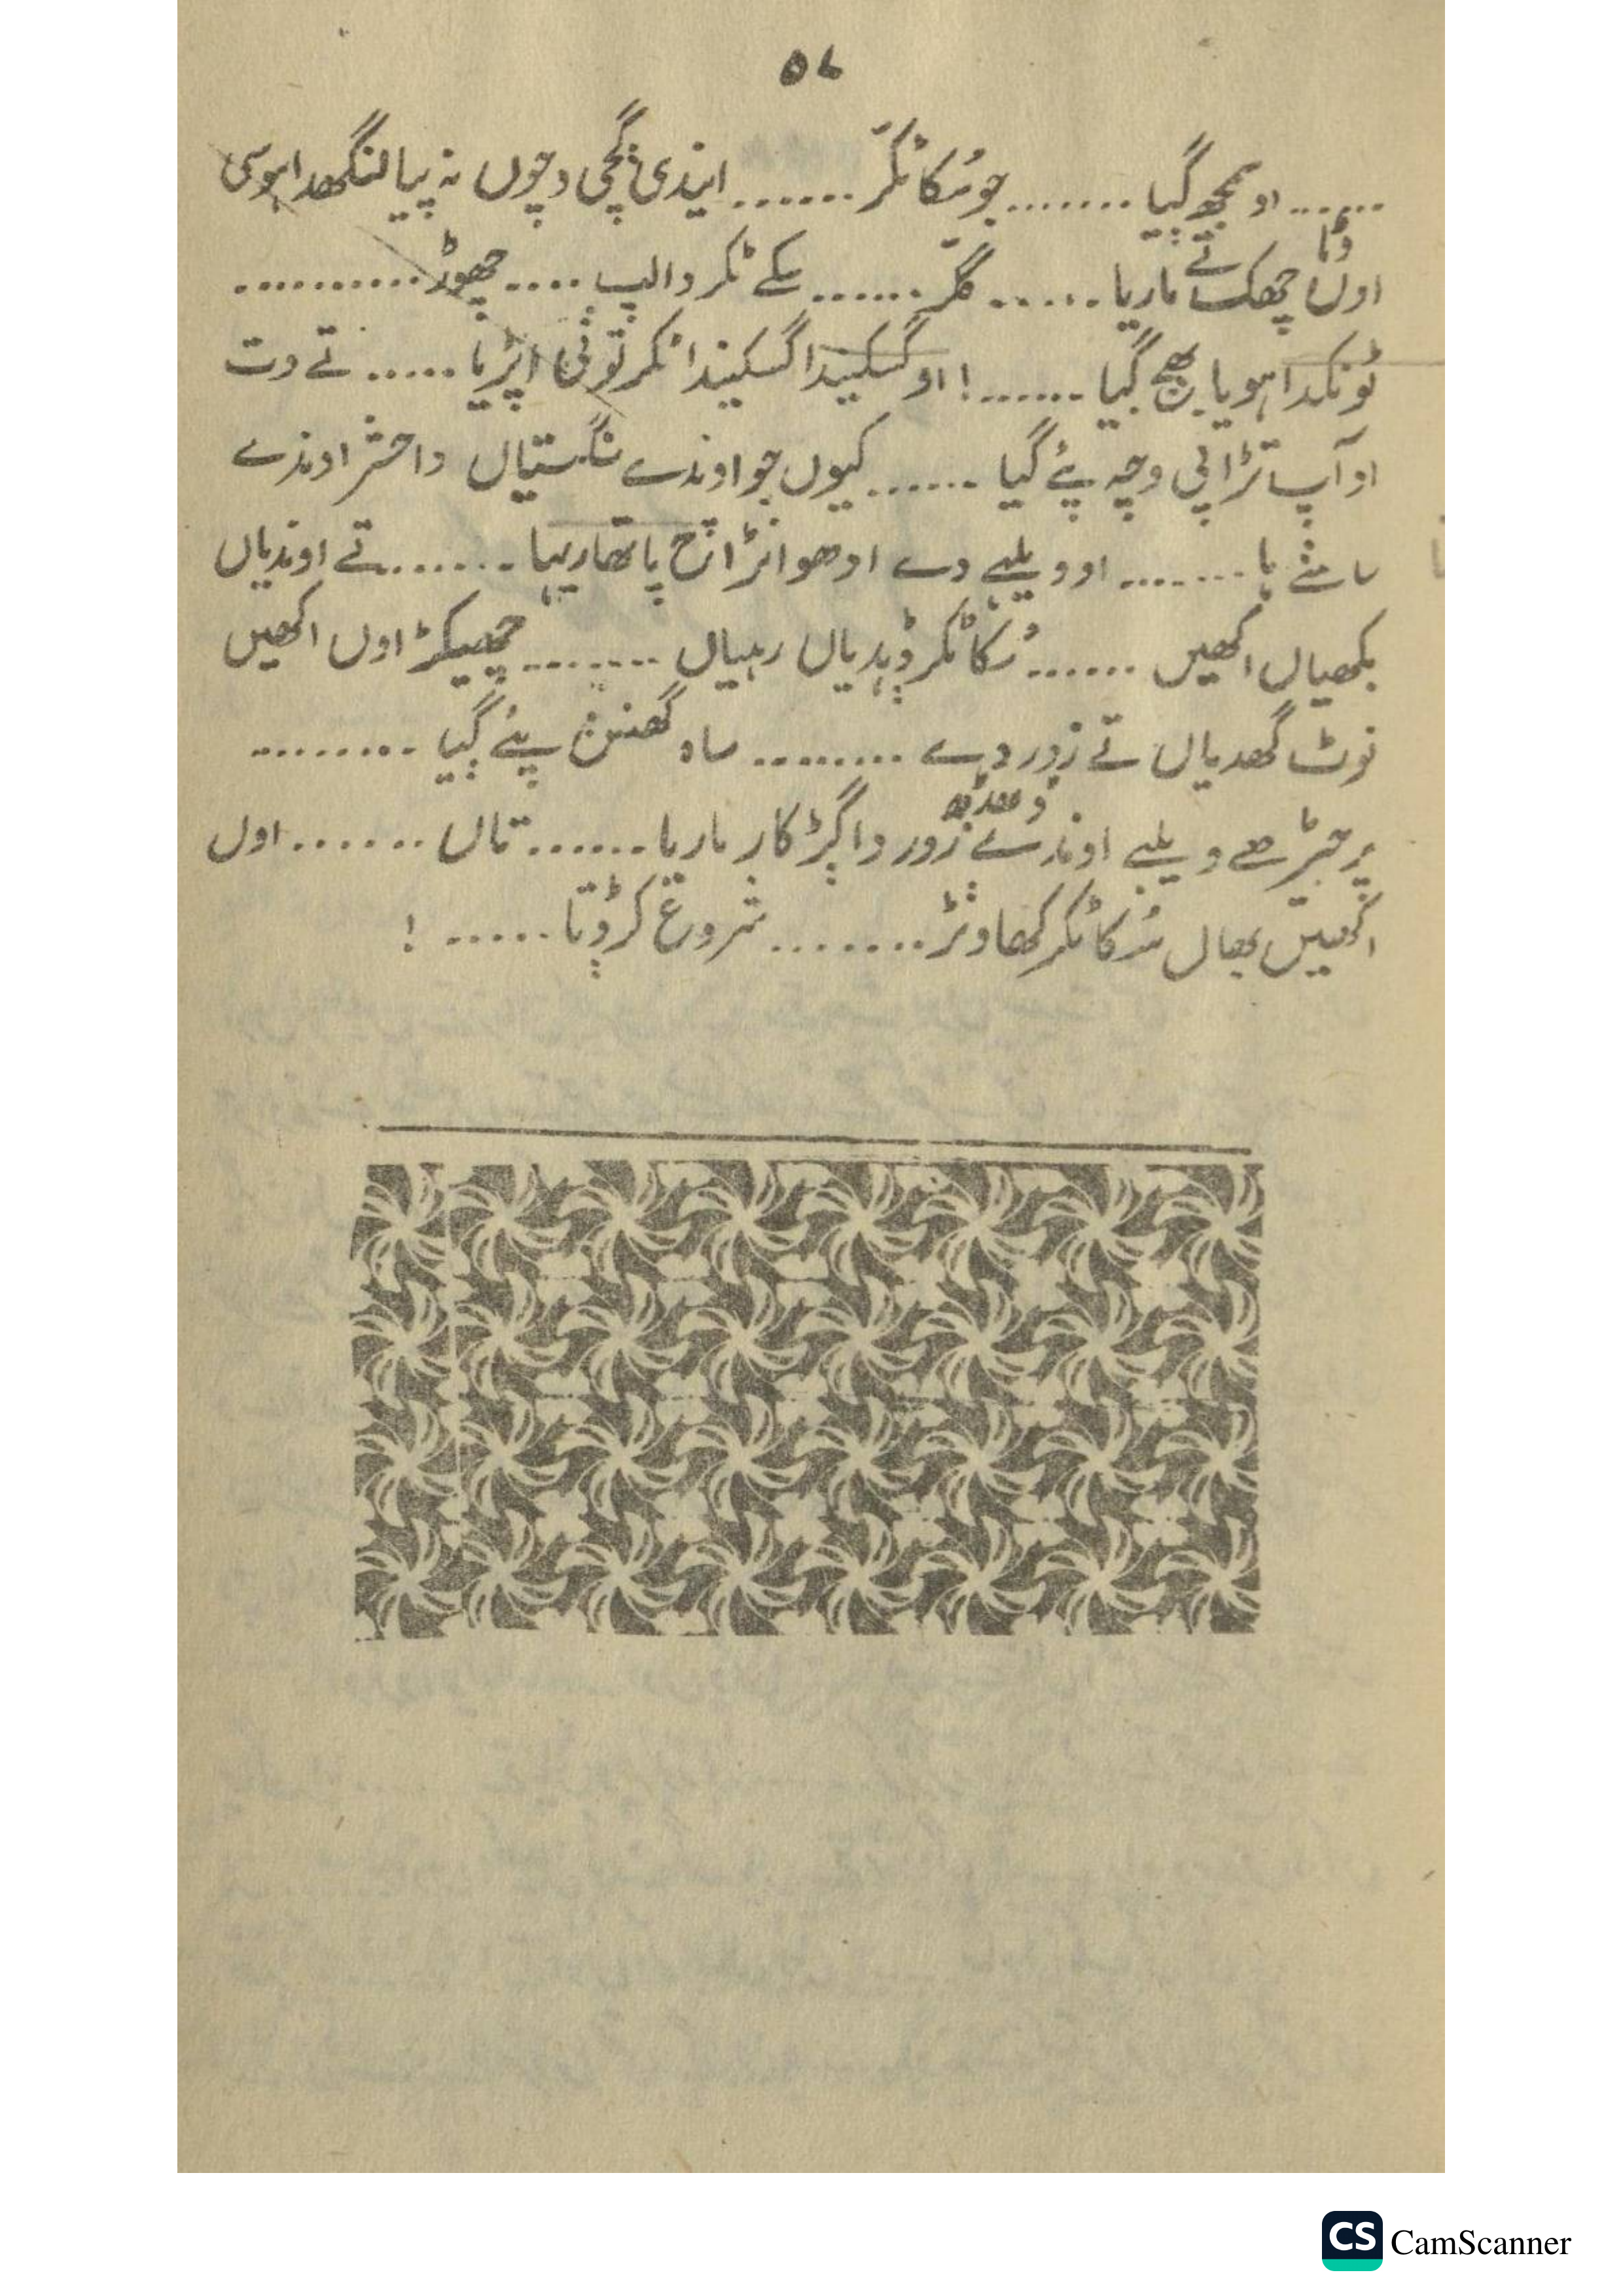 ۵۷
...... او سمجھ گیا ....... جو سُکا ٹکرّ ...... ایندی ڳچی وچوں نہ پیا لنگھدا ہوسی
وڈا
اوں چھک تے ماریا ...... ...... سکے ٹکر دا لپ .... چھوڑ ..........
ٹونکدا ہویا بھج ڳیا ......! او گسکیندا گسکیندا ٹکر توݨی اپڑیا ..... تے وت
او آپ تڑاپی وچہ پئے گیا ...... کیوں جو اوندے سنگتیاں دا حشر اوندے
سامݨے ہا ....... او ویلہے دے اوھو انڑانج پاتھاریہا ....... تے اوندیاں
بکھیاں اکھیں ...... سُکا ٹکر ݙیہدیاں رہیاں ....... چھیکڑ اوں اکھیں
نوٹ گھدیاں تے زور دے ........ ساہ گھنݨ پئے ڳیا .........
پر جڑھے ویلہے اوندے زور دا کار ماریا ...... تاں ...... اوں
اکھیں بھال سُکا ٹکر کھاوݨڑ ....... شروع کر ݙتا ..... !
CS CamScanner